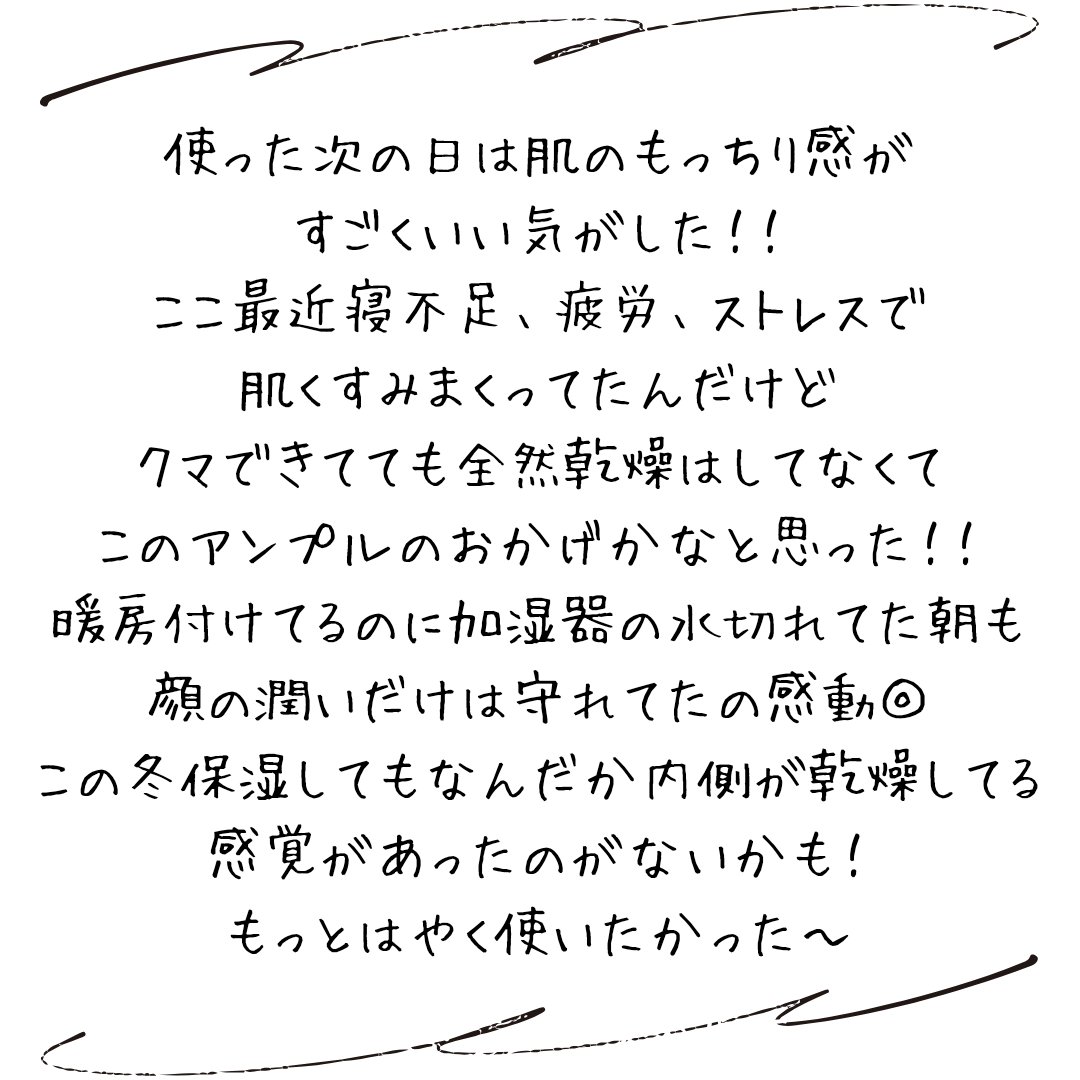 使った次の日は肌のもっちり感が
すごくいい気がした!!
ここ最近寝不足、疲労、ストレスで
肌くすみまくってたんだけど
クマできてても全然乾燥はしてなくて
このアンプルのおかげかなと思った!!
暖房付けてるのに加湿器の水切れてた朝も
顔の潤いだけは守れてたの感動◎
この冬保湿してもなんだか内側が乾燥してる
感覚があったのがないかも!
もっとはやく使いたかった〜